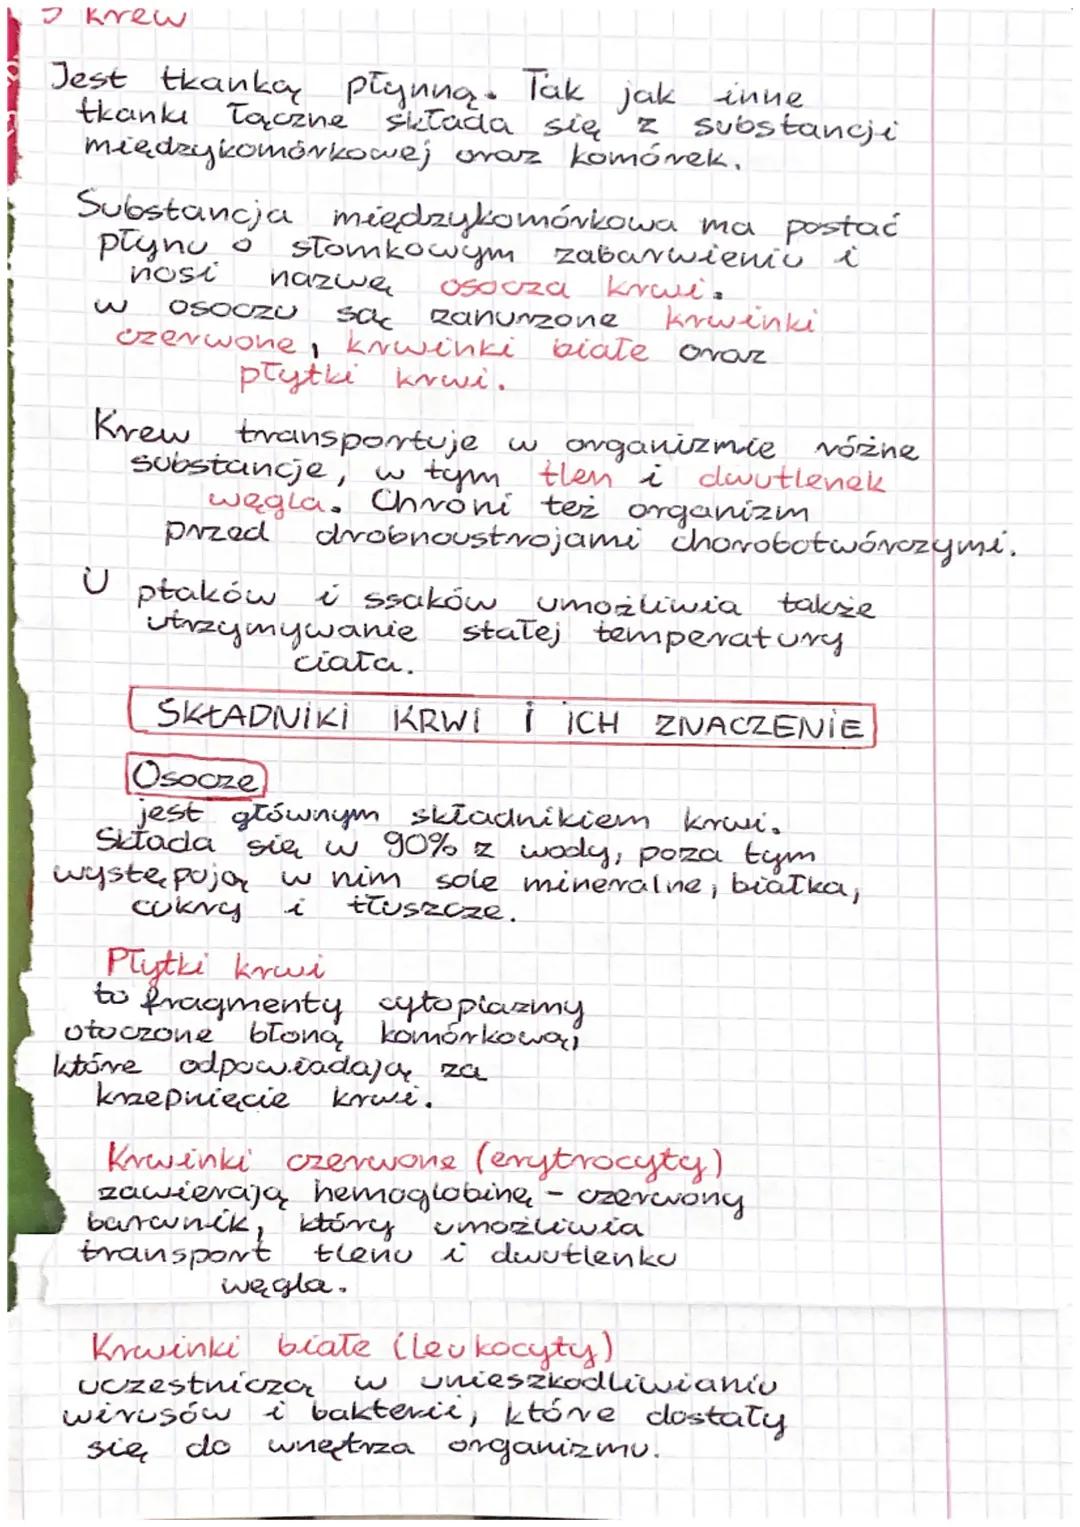 Krew
Jest tkanką płynną. Tak jak inne
tkanki łączne składa się z substancji
międzykomórkowej oraz komórek.
Substancja międzykomórkowa ma postać
płynu o słomkowym zabarwieniu i
nosi nazwę osocza krwi.
w osoczu są zanurzone krwinki
czerwone, krwinki białe oraz
płytki krwi.
Krew transportuje w organizmie różne
substancje, w tym tlen i dwutlenek
węgla. Chroni też organizm
przed drobnoustrojami chorobotwórczymi.
U ptaków i ssaków umożliwia także
utrzymywanie stałej temperatury
ciała.
SKŁADNIKI KRWI I ICH ZNACZENIE
Osocze
jest głównym składnikiem krwi.
Składa się w 90% z wody, poza tym
występują w nim sole mineralne, białka,
cukry i tłuszcze.
Płytki krwi
to fragmenty cytoplazmy
otoczone błoną komórkową,
które odpowiadają za
krzepnięcie krwi.
Krwinki czerwone (erytrocyty)
zawierają hemoglobinę - czerwony
barwnik, który umożliwia
transport tlenu i dwutlenku
węgla.
Krwinki białe (leukocyty)
uczestniczą w unieszkodliwianiu
wirusów i bakterii, które dostały
się do wnętrza organizmu.